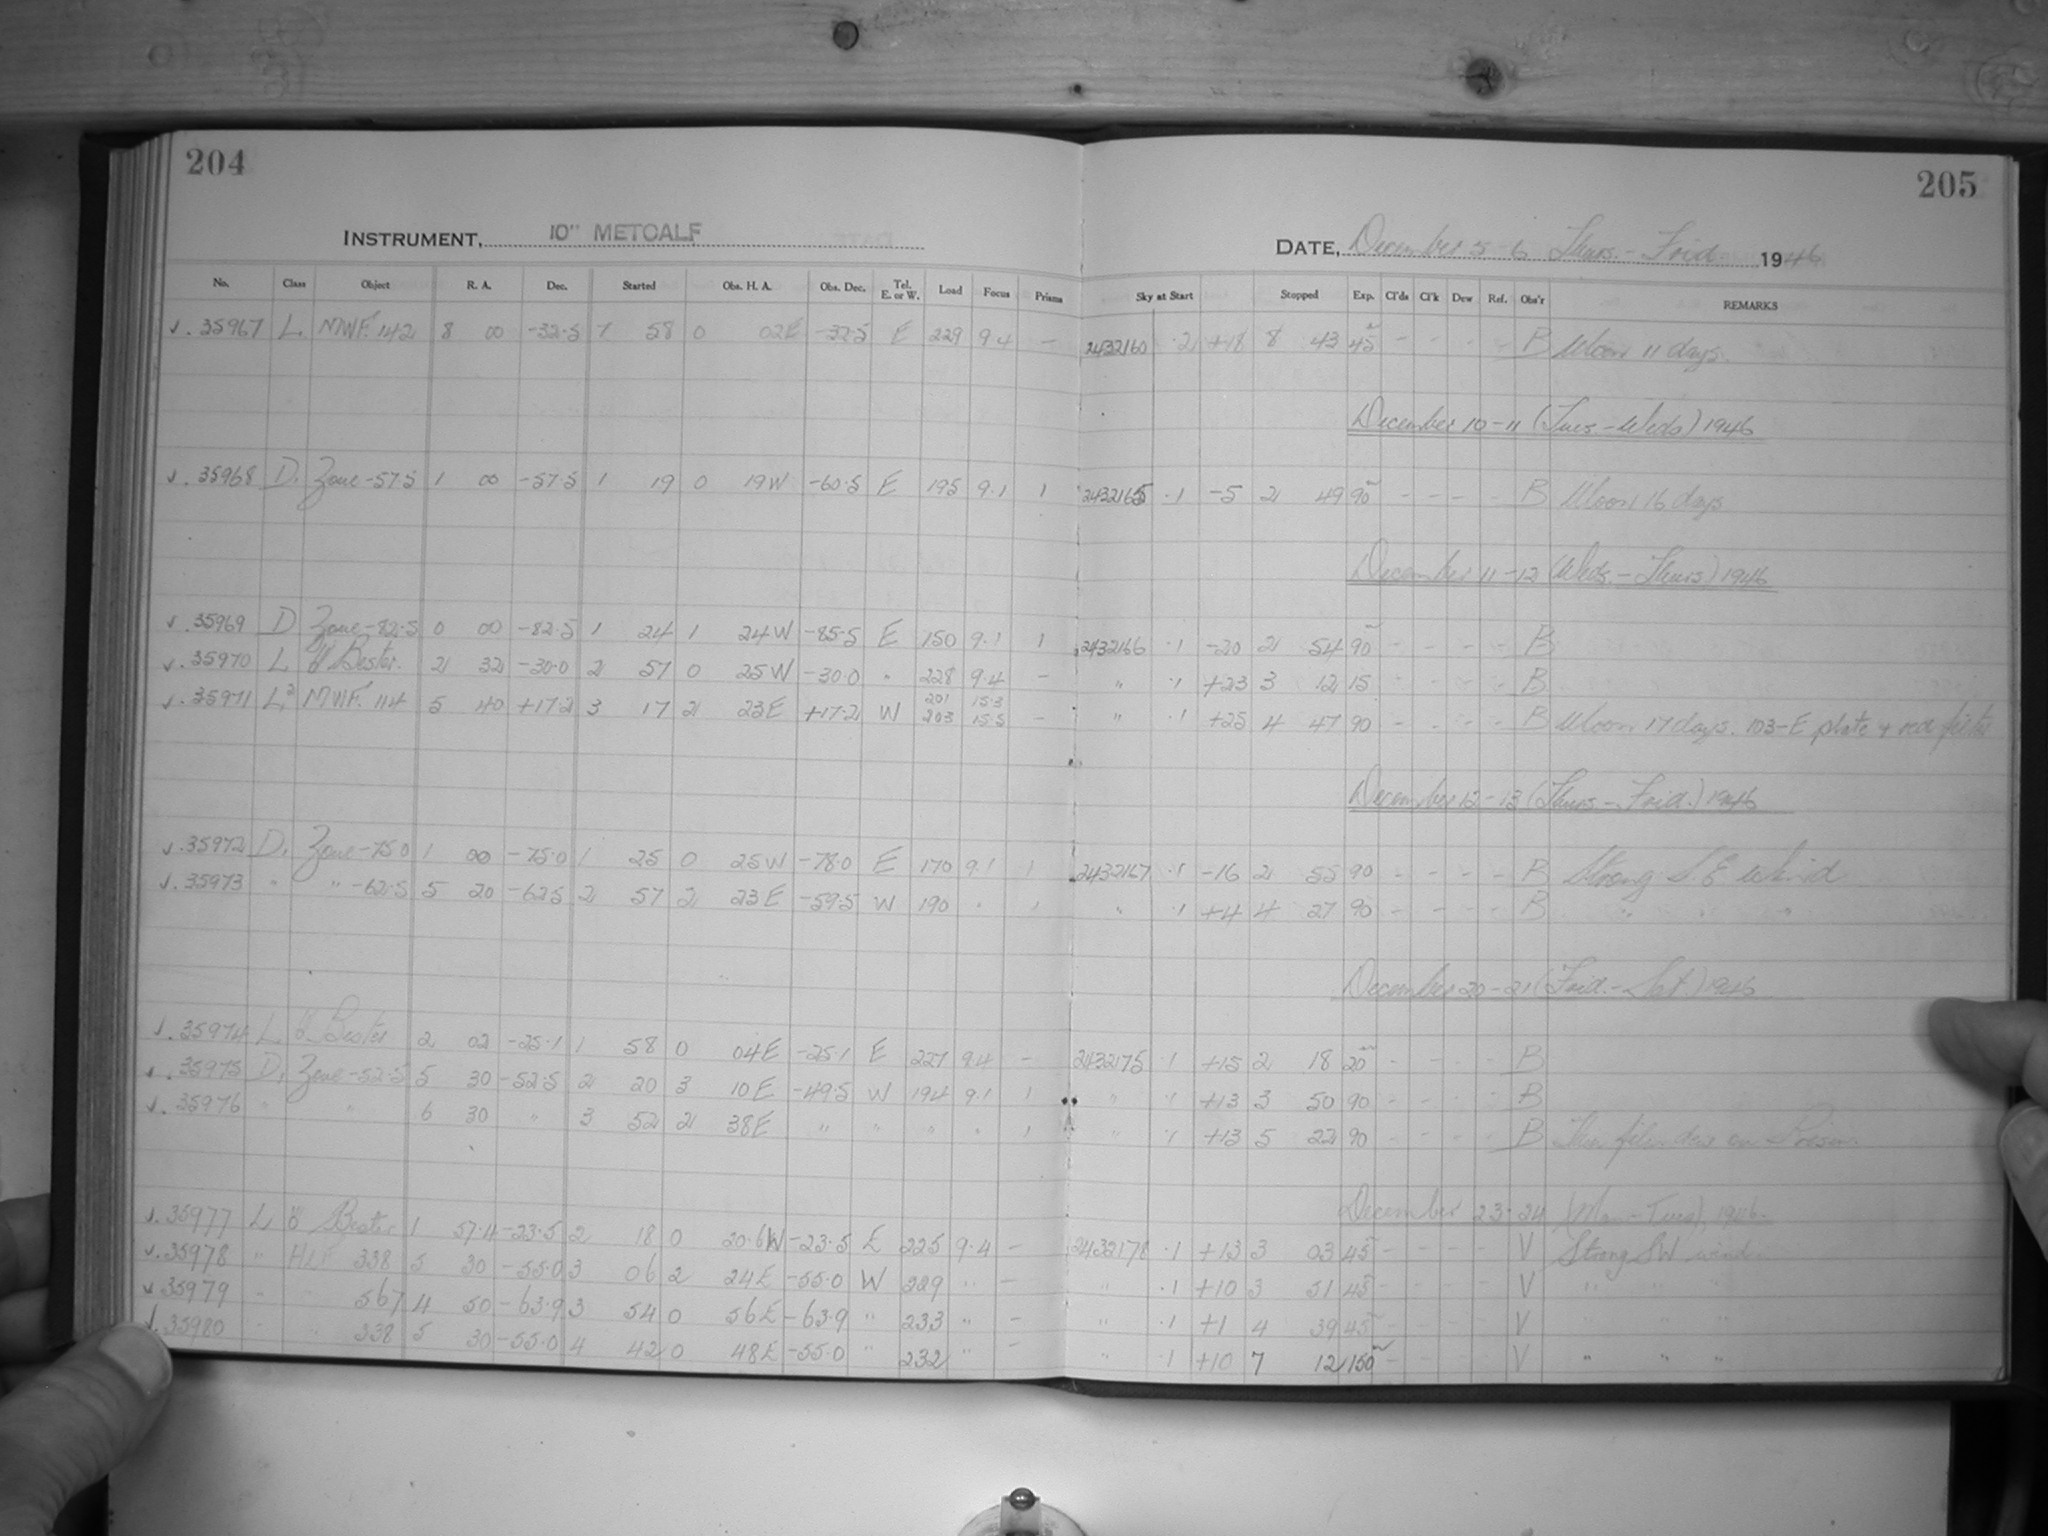 204
205
INSTRUMENT, 10" METCALF
DATE, December 5-6 Thurs.-Frid. 1946
No. Class Object R. A. Dec. Started Obs. H. A. Obs. Dec. Tel. E. or W. Load Focus Prisms Sky at Start Stopped Exp. Cl'ds Cl'k Dew Ref. Obs'r REMARKS
√. 35967 L. MWF. 142 8 00 -32.5 7 58 0 02E -32.5 E 229 9.4 - 2432160 .2 +18 8 43 45 - - - - B Moon 11 days.
December 10-11 (Tues.-Weds) 1946
√. 35968 D. Zone -57.5 1 00 -57.5 1 19 0 19W -60.5 E 195 9.1 1 2432165 .1 -5 2 49 90 - - - - B Moon 16 days
December 11-12 (Weds.-Thurs) 1946
√. 35969 D Zone -82.5 0 00 -82.5 1 24 1 24W -85.5 E 150 9.1 1 2432166 .1 -20 2 54 90 - - - - B
√. 35970 L Bester. 2 32 -30.0 2 57 0 25W -30.0 " 228 9.4 - " .1 +23 3 12 15 - - - - B
√. 35971 L MWF. 114 5 40 +17.2 3 17 2 23E +17.2 W 201 203 15.3 15.5 - " .1 +25 4 47 90 - - - - B Moon 17 days. 103-E plate + red filter
December 12-13 (Thurs-Frid.) 1946
√. 35972 D. Zone -75.0 1 00 -75.0 1 25 0 25W -78.0 E 170 9.1 1 2432167 .1 -16 2 55 90 - - - - B Strong S.E. Wind
√. 35973 " " -62.5 5 20 -62.5 2 57 2 23E -59.5 W 190 " 1 " .1 +4 4 27 90 - - - - B " " "
December 20-21 (Frid.-Sat.) 1946
√. 35974 L Bester 2 02 -25.1 1 58 0 04E -25.1 E 227 9.4 - 2432175 .1 +15 2 18 20 - - - - B
√. 35975 D. Zone -52.5 5 30 -52.5 2 20 3 10E -49.5 W 194 9.1 1 " .1 +13 3 50 90 - - - - B
√. 35976 " " 6 30 " 3 52 2 38E " " " " 1 " .1 +13 5 22 90 - - - - B Thin film dew on Prism.
December 23-24 (Mon-Tues), 1946.
√. 35977 L Bester 1 57.4 -23.5 2 18 0 20.6W -23.5 E 225 9.4 - 2432178 .1 +13 3 03 45 - - - - V Strong SW wind.
√. 35978 " 338 5 30 -55.0 3 06 2 24E -55.0 W 229 " - " .1 +10 3 51 45 - - - - V " " "
√. 35979 " " 567 4 50 -63.9 3 54 0 56E -63.9 " 233 " - " .1 +1 4 39 45 - - - - V " " "
√. 35980 " " 338 5 30 -55.0 4 42 0 48E -55.0 " 232 " - " .1 +10 7 12 150 - - - - V " " "